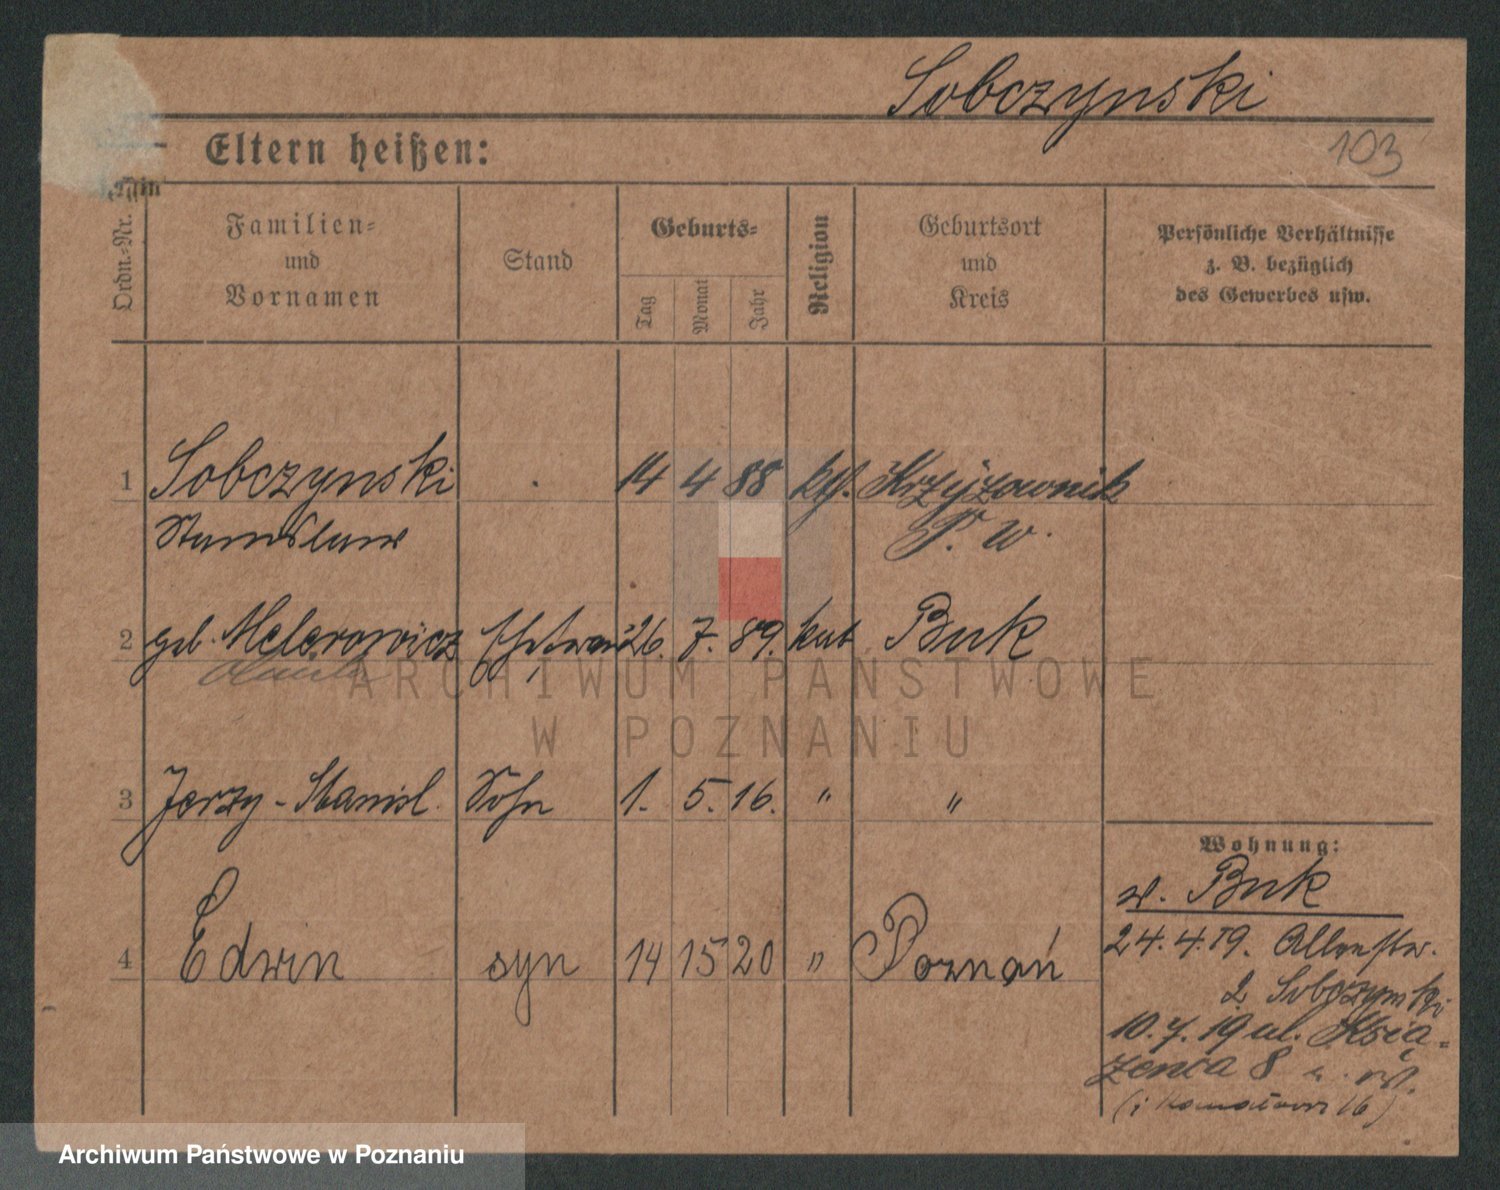 Sobczynski
Eltern heißen:
103
Ordn.-Nr.
Familien-
und
Vornamen
Stand
Geburts-
Tag
Monat
Jahr
Religion
Geburtsort
und
Kreis
Persönliche Verhältnisse
z. B. bezüglich
des Gewerbes usw.
1 Sobczynski 14 4 88 kth. Krzyżownik
Stanislaus P. W.
2 geb. Melerowicz Ehefrau 26. 7. 89. kat Buk
ARCHIWUM PAŃSTWOWE
W POZNANIU
3 Jerzy-Stanisl. Sohn 1. 5. 16. " "
Wohnung:
w. Buk
4 Edwin syn 14 15 20 " Poznań
24.4.19. Allerstr.
2 Sobczynski
10.7.19 ul. Ksią-
żenca 8
Archiwum Państwowe w Poznaniu